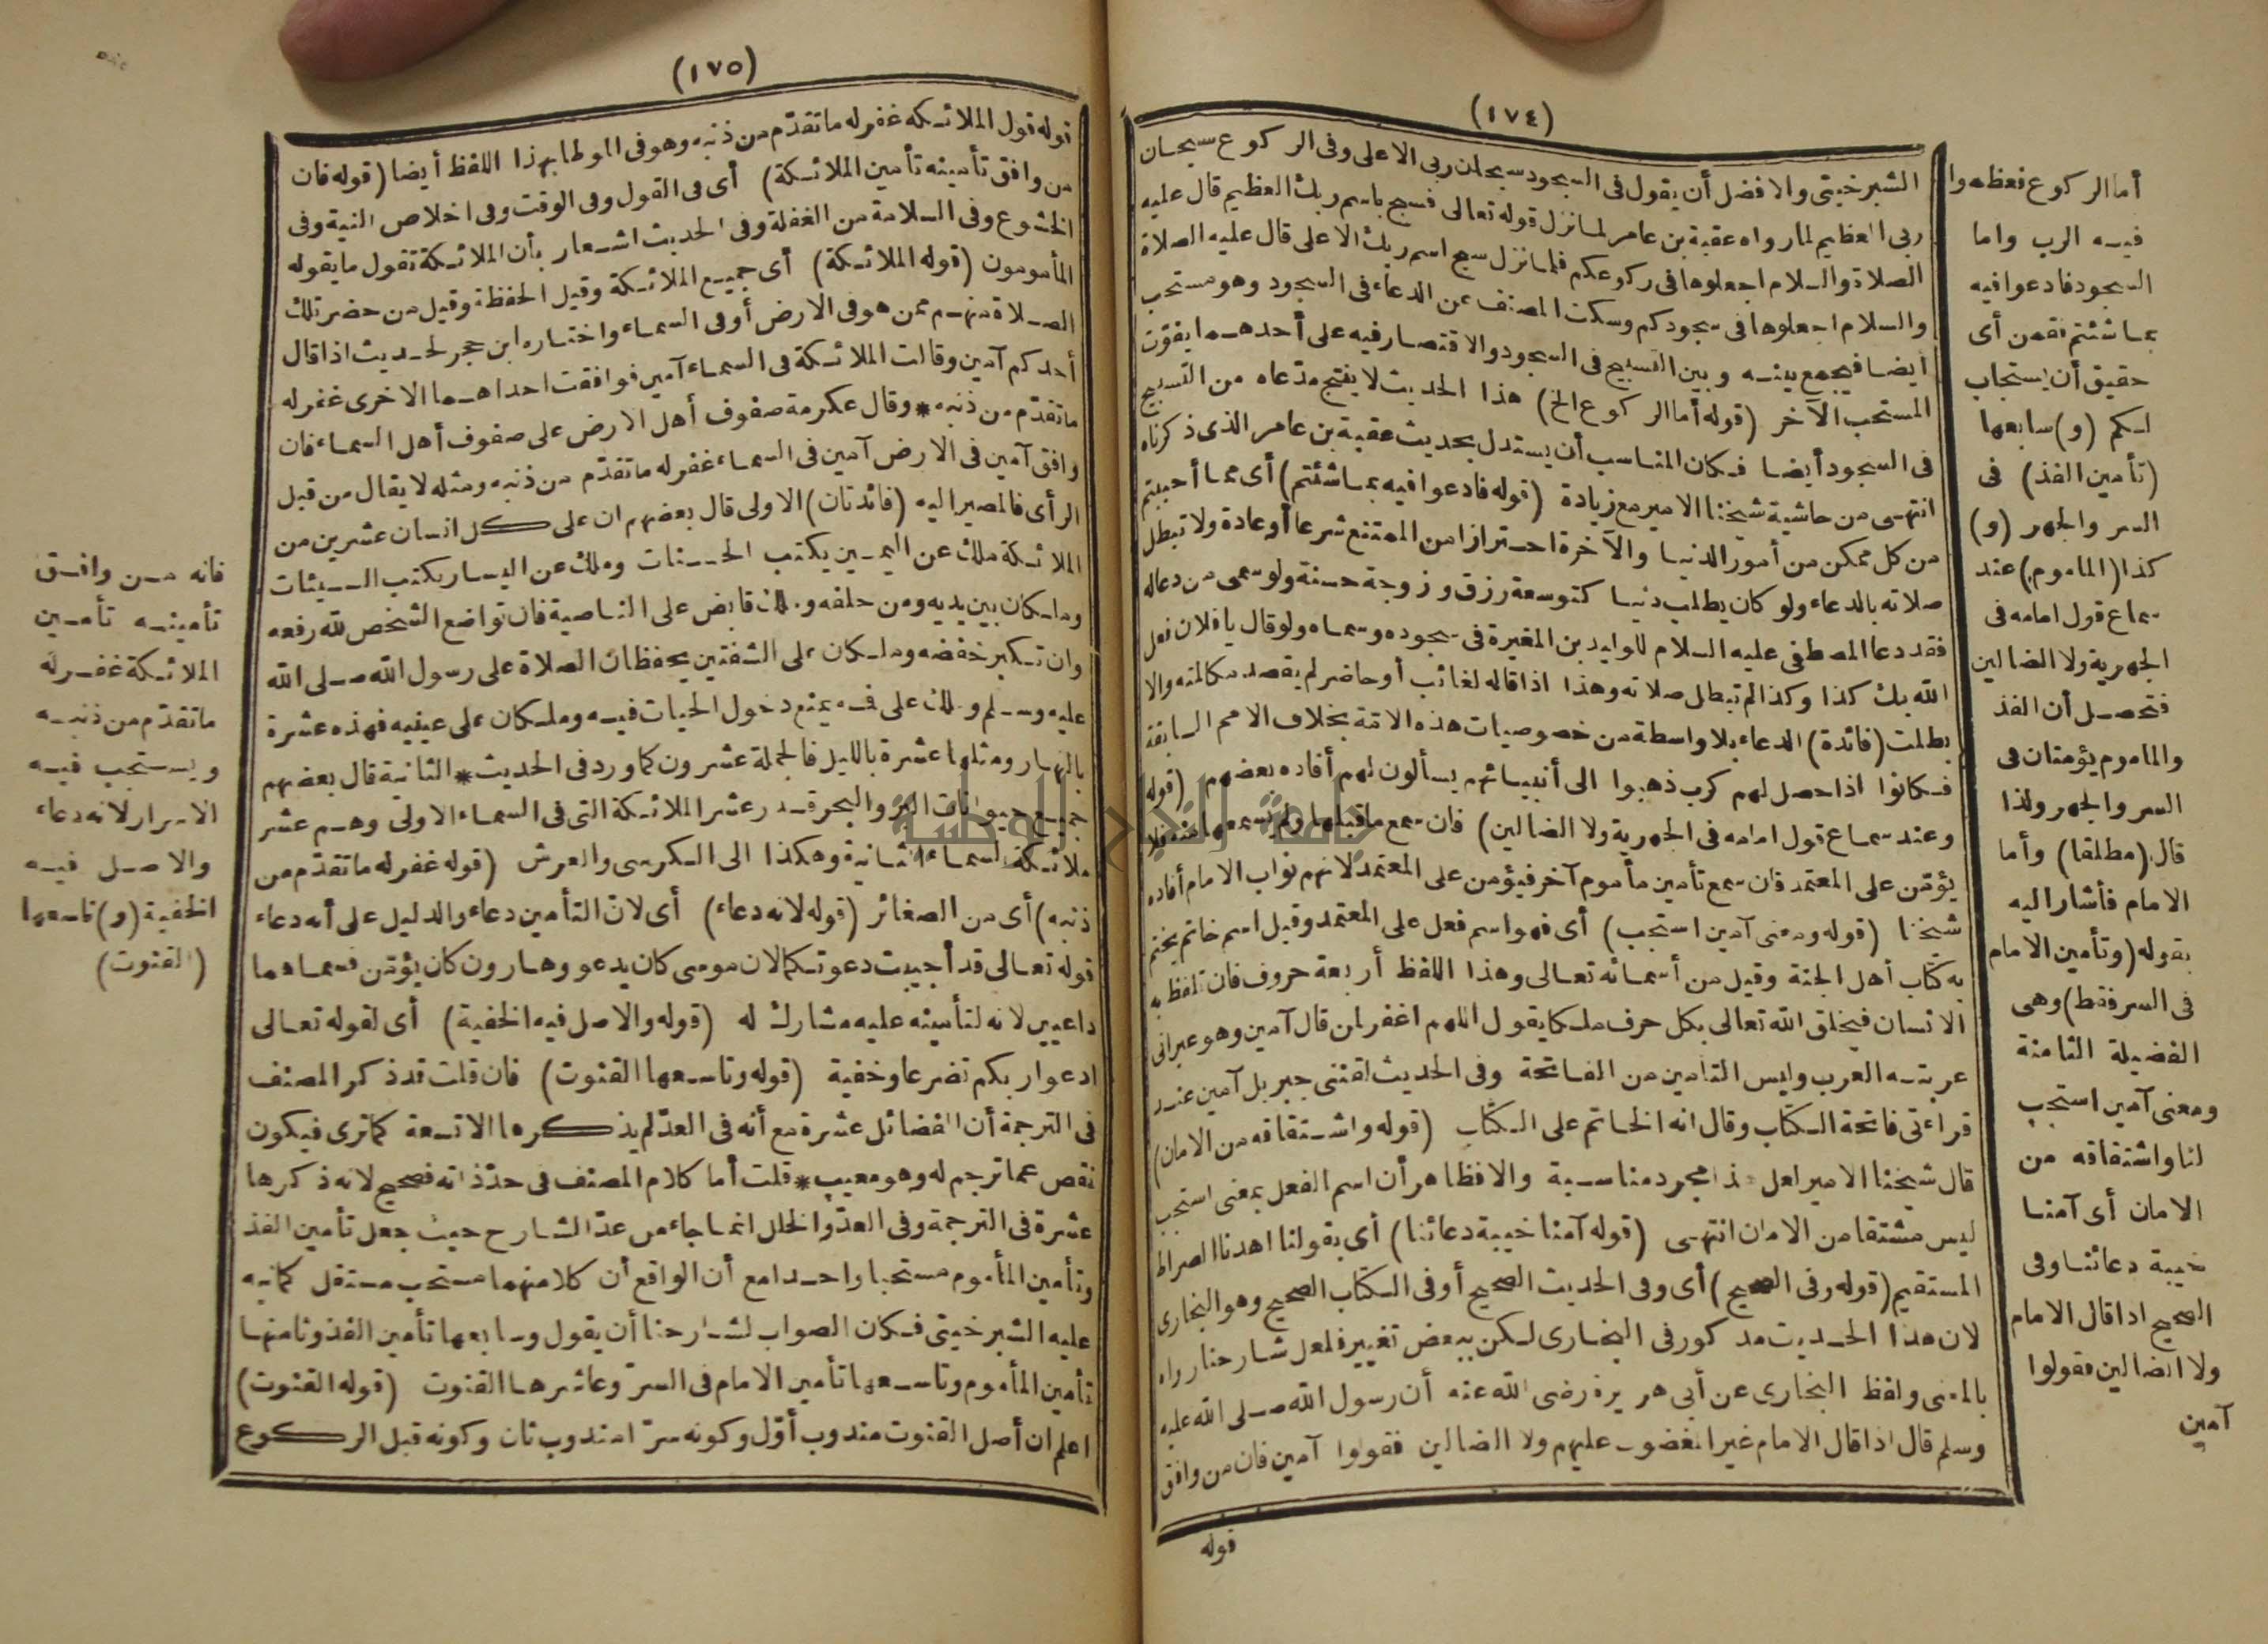 (١٧٤)
الشبرخيتى والافضل أن يقول فى السجود سبحان ربى الاعلى وفى الركوع سبحان
ربى العظيم لما رواه عقبة بن عامر لما نزل قوله تعالى فسبح باسم ربك العظيم قال عليه
الصلاة والسلام اجعلوها فى ركوعكم فلما نزل سبح اسم ربك الاعلى قال عليه الصلاة
والسلام اجعلوها فى سجودكم وسكت المصنف عن الدعاء فى السجود وهو مستحب
أيضا فيجمع بينه وبين التسبيح فى السجود والاقتصار فيه على أحدهما يفوّت
المستحب الآخر (قوله أما الركوع الخ) هذا الحديث لا ينتج مدّعاه من التسبيح
فى السجود أيضا فكان المناسب أن يستدل بحديث عقبة بن عامر الذى ذكرناه
انتهى من حاشية شيخنا الامير مع زيادة (قوله فادعوا فيه بما شئتم) أى مما أحببتم
من كل ممكن من أمور الدنيا والآخرة احترازا من الممتنع شرعا أو عادة ولا تبطل
صلاته بالدعاء ولو كان يطلب دنيا كتوسعة رزق وزوجة حسنة ولو سمى من دعا له
فقد دعا المصطفى عليه السلام للوليد بن المغيرة فى سجوده وسماه ولو قال يا فلان فعل
الله بك كذا وكذا لم تبطل صلاته وهذا اذا قاله لغائب أو حاضر لم يقصد مكالمته والا
بطلت (فائدة) الدعاء بلا واسطة من خصوصيات هذه الامّة بخلاف الامم السابقة
فكانوا اذا حصل لهم كرب ذهبوا الى أنبيائهم يسألون لهم أفاده بعضهم (قوله
وعند سماع قول امامه فى الجهرية ولا الضالين) فان سمع ما قبلها ولم يسمعها منه فلا
يؤمّن على المعتمد فان سمع تأمين مأموم آخر فيؤمن على المعتمد لانهم نواب الامام أفاده
شيخنا (قوله ومعنى آمين استجب) أى فهو اسم فعل على المعتمد وقيل اسم خاتم يختم
به كتاب أهل الجنة وقيل من أسمائه تعالى وهذا اللفظ أربعة حروف فان تلفظ به
الانسان فيخلق الله تعالى بكل حرف ملكا يقول اللهم اغفر لمن قال آمين وهو عبرانى
عربته العرب وليس التأمين من الفاتحة وفى الحديث لقننى جبريل آمين عند
قراءتى فاتحة الكتاب وقال انه الخاتم على الكتاب (قوله واشتقاقه من الامان)
قال شيخنا الامير لعل هذا مجرد مناسبة والا فظاهر أن اسم الفعل بمعنى استجب
ليس مشتقا من الامان انتهى (قوله آمنا خيبة دعائنا) أى بقولنا اهدنا الصراط
المستقيم (قوله وفى الصحيح) أى وفى الحديث الصحيح أو فى الكتاب الصحيح وهو البخارى
لان هذا الحديث مذكور فى البخارى لكن ببعض تغيير فلعل شارحنا رواه
بالمعنى ولفظ البخارى عن أبى هريرة رضى الله عنه أن رسول الله صلى الله عليه
وسلم قال اذا قال الامام غير المغضوب عليهم ولا الضالين فقولوا آمين فان من وافق
قوله
أما الركوع فعظموا
فيه الرب واما
السجود فادعوا فيه
بما شئتم فقمن أى
حقيق أن يستجاب
لكم (و) سابعها
(تأمين الفذ) فى
السر والجهر (و)
كذا (الماموم) عند
سماع قول امامه فى
الجهرية ولا الضالين
فتحصل أن الفذ
والماموم يؤمنان فى
السر والجهر ولذا
قال (مطلقا) وأما
الامام فأشار اليه
بقوله (وتأمين الامام
فى السر فقط) وهى
الفضيلة الثامنة
ومعنى آمين استجب
لنا واشتقاقه من
الامان أى آمنا
خيبة دعائنا وفى
الصحيح اذا قال الامام
ولا الضالين فقولوا
آمين
(١٧٥)
قوله قول الملائكة غفر له ما تقدّم من ذنبه وهو فى الموطا بهذا اللفظ أيضا (قوله فان
من وافق تأمينه تأمين الملائكة) أى فى القول وفى الوقت وفى اخلاص النية وفى
الخشوع وفى السلامة من الغفلة وفى الحديث اشعار بأن الملائكة تقول ما يقوله
المأمومون (قوله الملائكة) أى جميع الملائكة وقيل الحفظة وقيل من حضر تلك
الصلاة منهم ممن هو فى الارض أو فى السماء واختاره ابن حجر لحديث اذا قال
أحدكم آمين وقالت الملائكة فى السماء آمين فوافقت احداهما الاخرى غفر له
ما تقدّم من ذنبه * وقال عكرمة صفوف أهل الارض على صفوف أهل السماء فان
وافق آمين فى الارض آمين فى السماء غفر له ما تقدّم من ذنبه ومثله لا يقال من قبل
الرأى فالمصير اليه (فائدتان) الاولى قال بعضهم ان على كل انسان عشرين من
الملائكة ملك عن اليمين يكتب الحسنات وملك عن اليسار يكتب السيئات
وملكان بين يديه ومن خلفه وملك قابض على الناصية فان تواضع الشخص لله رفعه
وان تكبر خفضه وملكان على الشفتين يحفظان الصلاة على رسول الله صلى الله
عليه وسلم وملك على فمه يمنع دخول الحيات فيه وملكان على عينيه فهذه عشرة
بالنهار ومثلها عشرة بالليل فالجملة عشرون كما ورد فى الحديث * الثانية قال بعضهم
جميع حيوانات البر والبحر قدر عشر الملائكة التى فى السماء الاولى وهم عشر
ملائكة السماء الثانية وهكذا الى الكرسى والعرش (قوله غفر له ما تقدّم من
ذنبه) أى من الصغائر (قوله لانه دعاء) أى لانّ التأمين دعاء والدليل على أنه دعاء
قوله تعالى قد أجيبت دعوتكما لان موسى كان يدعو وهارون كان يؤمّن فسماهما
داعيين لانه لتأمينه عليه مشارك له (قوله والاصل فيه الخفية) أى لقوله تعالى
ادعوا ربكم تضرعا وخفية (قوله وتاسعها القنوت) فان قلت قد ذكر المصنف
فى الترجمة أن الفضائل عشرة مع أنه فى العدّ لم يذكرها الا تسعة كما ترى فيكون
نقص عما ترجم له وهو معيب * قلت أما كلام المصنف فى حدّ ذاته فصحيح لانه ذكرها
عشرة فى الترجمة وفى العدّ والخلل انما جاء من عدّ الشارح حيث جعل تأمين الفذ
وتأمين المأموم مستحبا واحدا مع أن الواقع أن كلا منهما مستحب مستقل كما نبه
عليه الشبرخيتى فكان الصواب لشارحنا أن يقول وسابعها تأمين الفذ وثامنها
تأمين المأموم وتاسعها تأمين الامام فى السرّ وعاشرها القنوت (قوله القنوت)
اعلم ان أصل القنوت مندوب أوّل وكونه سرّا مندوب ثان وكونه قبل الركوع
فانه من وافق
تأمينه تأمين
الملائكة غفر له
ما تقدّم من ذنبه
ويستحب فيه
الاسرار لانه دعاء
والاصل فيه
الخفية (و) تاسعها
(القنوت)
جامعة النجاح الوطنية